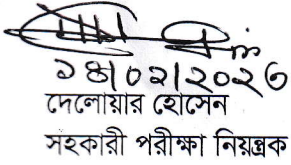 ১৪/০২/২০২৩
দেলোয়ার হোসেন
সহকারী পরীক্ষা নিয়ন্ত্রক